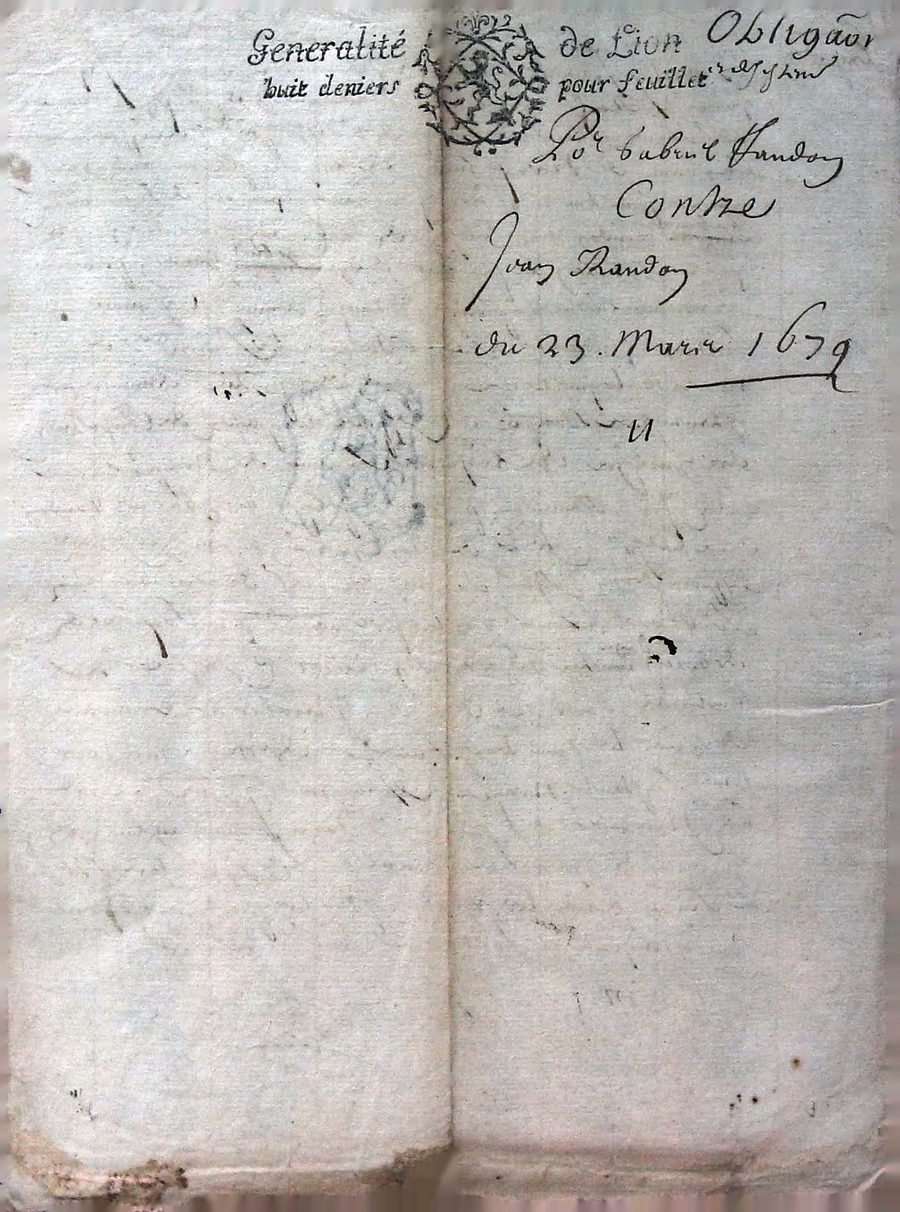 Generalité de Lion
huit deniers pour feuillet
Obligaõn
Por Gabriel Randon
Contre
Jean Randon
du 23. Mars 1679
11